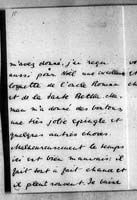 m'avez donné, j'ai reçu
aussi pour Noël une
de l'oncle Roman
et de la tante
man m'a donné des boutons
une très jolie épingle et
quelques autres choses.
Malheureusement le temps
ici est bien mauvais il
fait tout à fait chaud et
il pleut souvent. Je